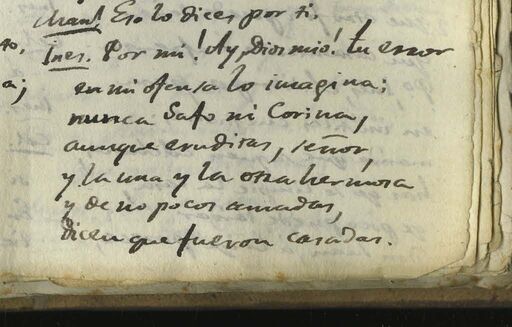 Man! Eso lo dices por ti.
Ines. Por mi! Ay, dios mio! tu error
en mi ofensa lo imagina;
nunca Safo ni Corina,
aunque eruditas, señor,
y la una y la otra hermosa
y de no pocos amadas,
dicen que fueron casadas.